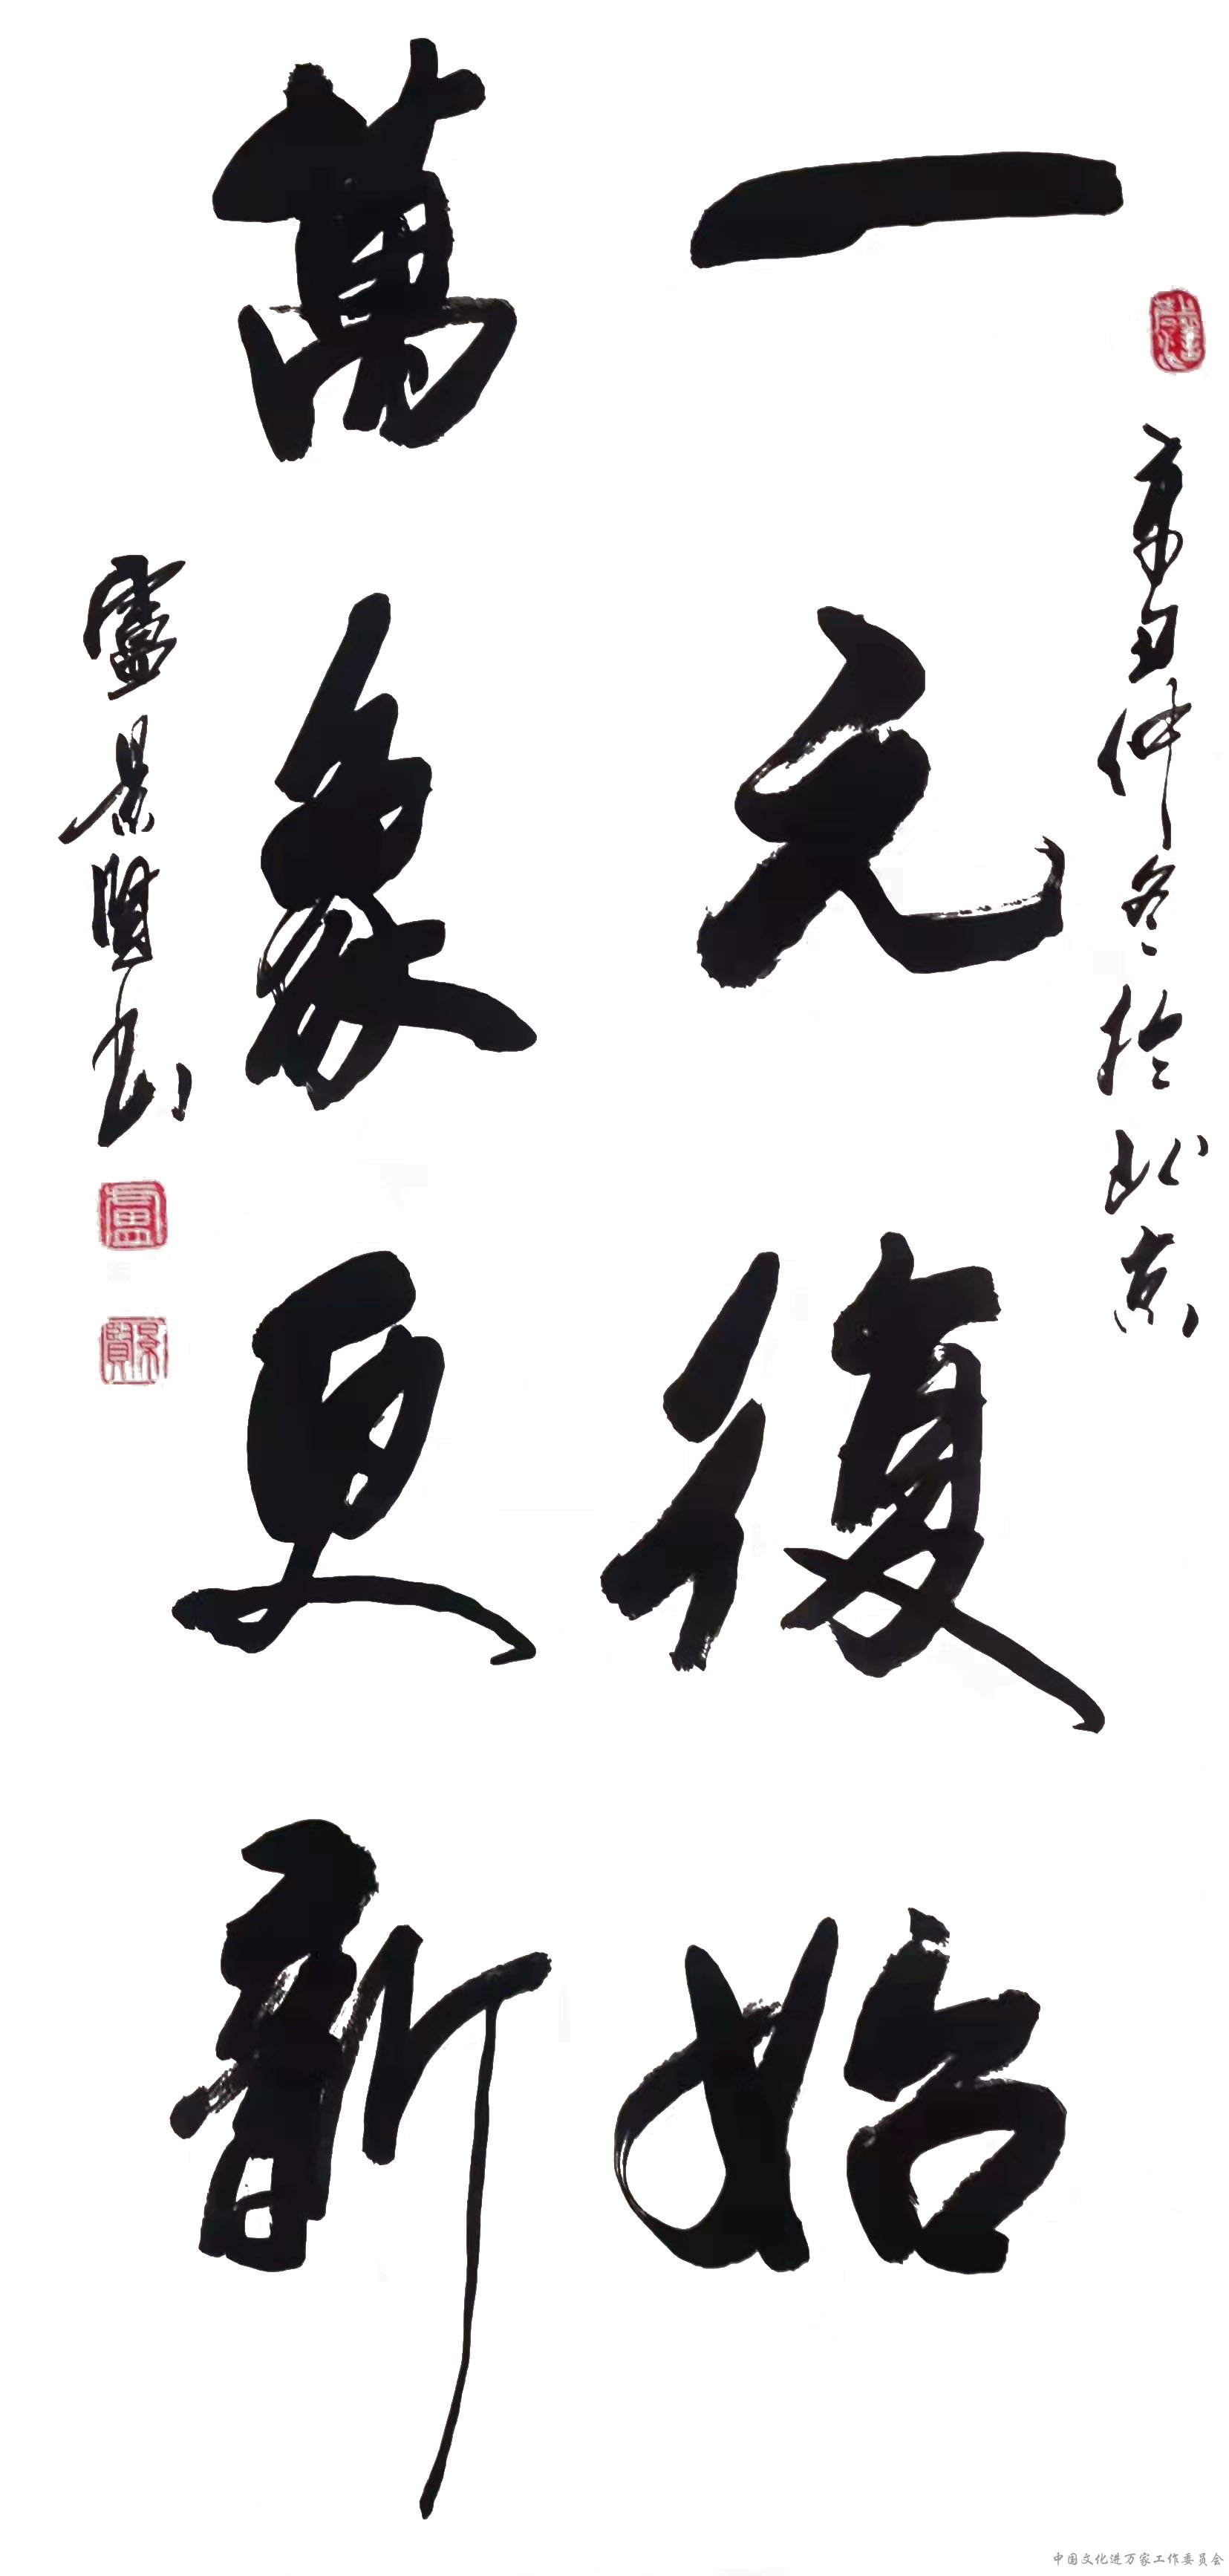 辛丑仲冬於北京
一元復始
萬象更新
盧景賢書
盧
景賢
中国文化进万家工作委员会